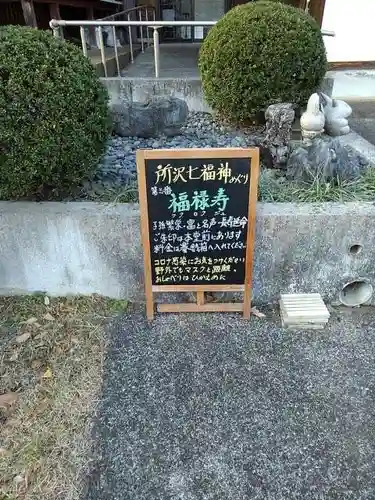 所沢七福神めぐり
第六番
福禄寿
フクロクジュ
子孫繁栄・富と名声・長寿延命
ご朱印は本堂前にあります
料金は賽銭箱へ入れて下さい
コロナ感染にお気をつけください
野外でもマスク着用
おしゃべりはひかえめに